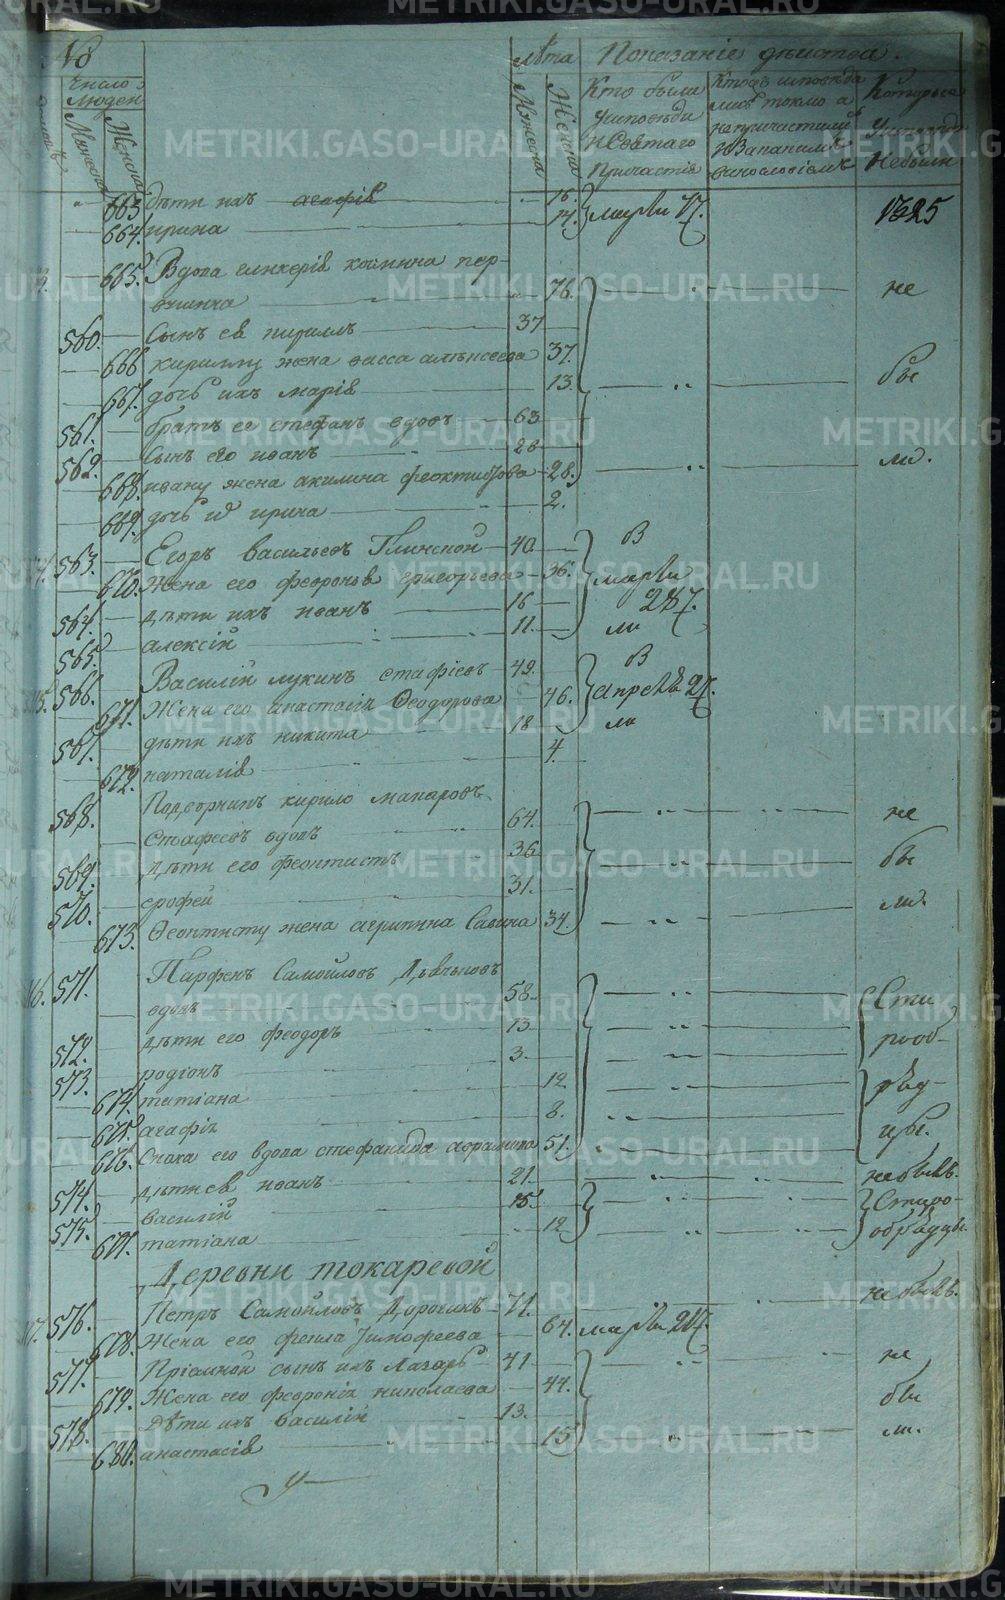 №
Число людей
Мужеска
Женска
лѣта
Мужеска
Женска
Показаніе дѣйства.
Кто были у исповѣди и святаго причастія
Которые у исповѣди не были
1825
663. дѣти ихъ агафія 16.
664. ирина 14. марта 17.
665. Вдова гликерія
76. не
560. Сынъ ея кирилъ 37
666 кириллу жена васса алексеева 37.
667. дочь ихъ марія 13. бы
561. братъ ее стефанъ вдовъ 63
562. Сынъ его иванъ 28
668. ивану жена акилина феоктистова 28. ли.
669. дочь ирина 2.
563. Егоръ васильевъ Глинской 40. в
670. Жена его феврония григорьева 36. марта
564. дѣти ихъ иванъ 16 28 7.
565. алексій 11. ли
566. Василій лукинъ стафіевъ 49. в
671. Жена его анастасія Феодорова 46. апреля 27.
567. дѣти ихъ никита 18 ла
672. наталія 4.
568. Подворникъ кирило макаровъ
Стафеевъ вдовъ 64. не
569. дѣти его феоктистъ 36 бы
570. ерофей 31. ли.
673. Феоктисту жена агрипина Савина 34.
571. Парфенъ Самойловъ
вдовъ 58. Ста
572. дѣти его феодоръ 13. рооб
573. родіонъ 3.
674. татіана 12 ряд
675. агафія 8.
676. Сноха его вдова стефанида абрамова 51. цы.
574. дѣти ея иванъ 21. не бывъ.
575. василій 15 Старо-
677. татіана 12 обрядцы.
Деревни токаревой
576. Петръ Самойловъ Дорогинъ 71. не бывъ.
678. Жена его фекла Тимофеева 64. марта 21.
577. Пріемной сынъ ихъ Лазарь 41 не
679. Жена его феврония николаева 44.
578. Дѣти ихъ василій 13. бы
680. анастасія 15 ли.
METRIKI.GASO-URAL.RU